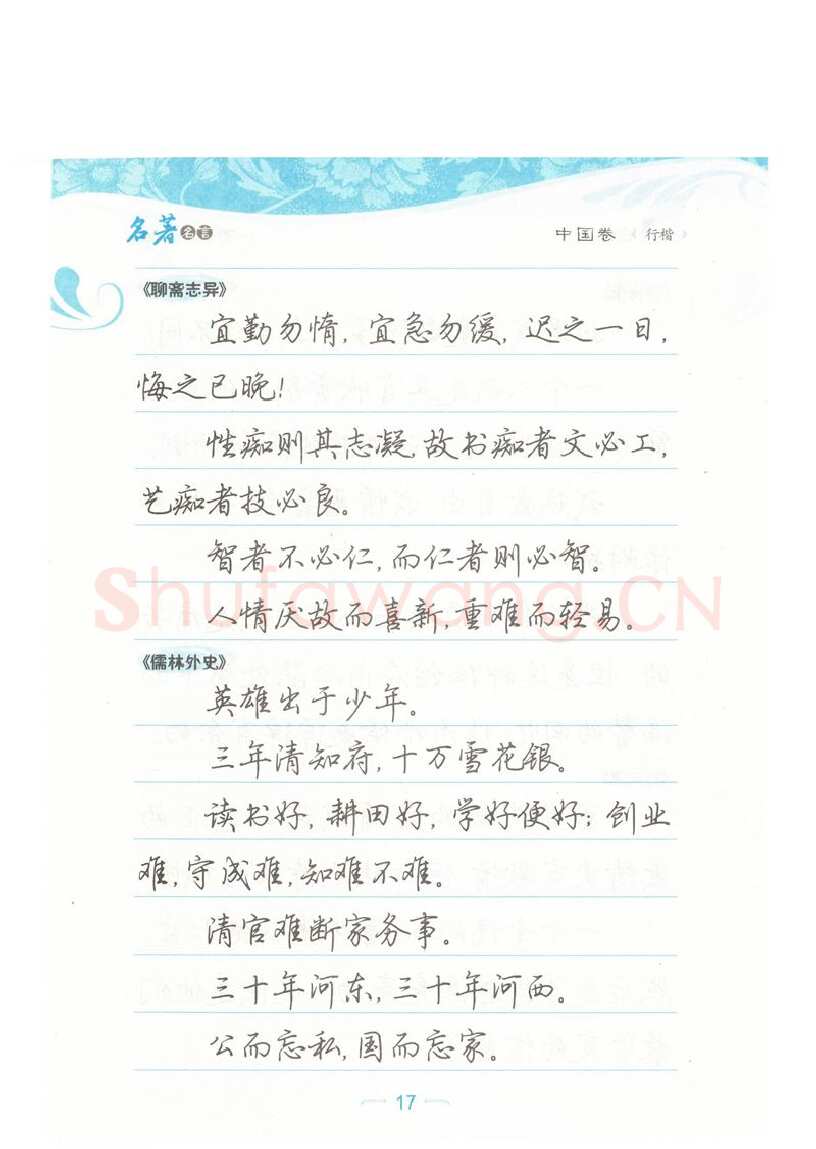 名著名言
中国卷 〈行楷〉
《聊斋志异》
宜勤勿惰，宜急勿缓，迟之一日，
悔之已晚！
性痴则其志凝，故书痴者文必工，
艺痴者技必良。
智者不必仁，而仁者则必智。
Shufawang.CN
人情厌故而喜新，重难而轻易。
《儒林外史》
英雄出于少年。
三年清知府，十万雪花银。
读书好，耕田好，学好便好；创业
难，守成难，知难不难。
清官难断家务事。
三十年河东，三十年河西。
公而忘私，国而忘家。
17